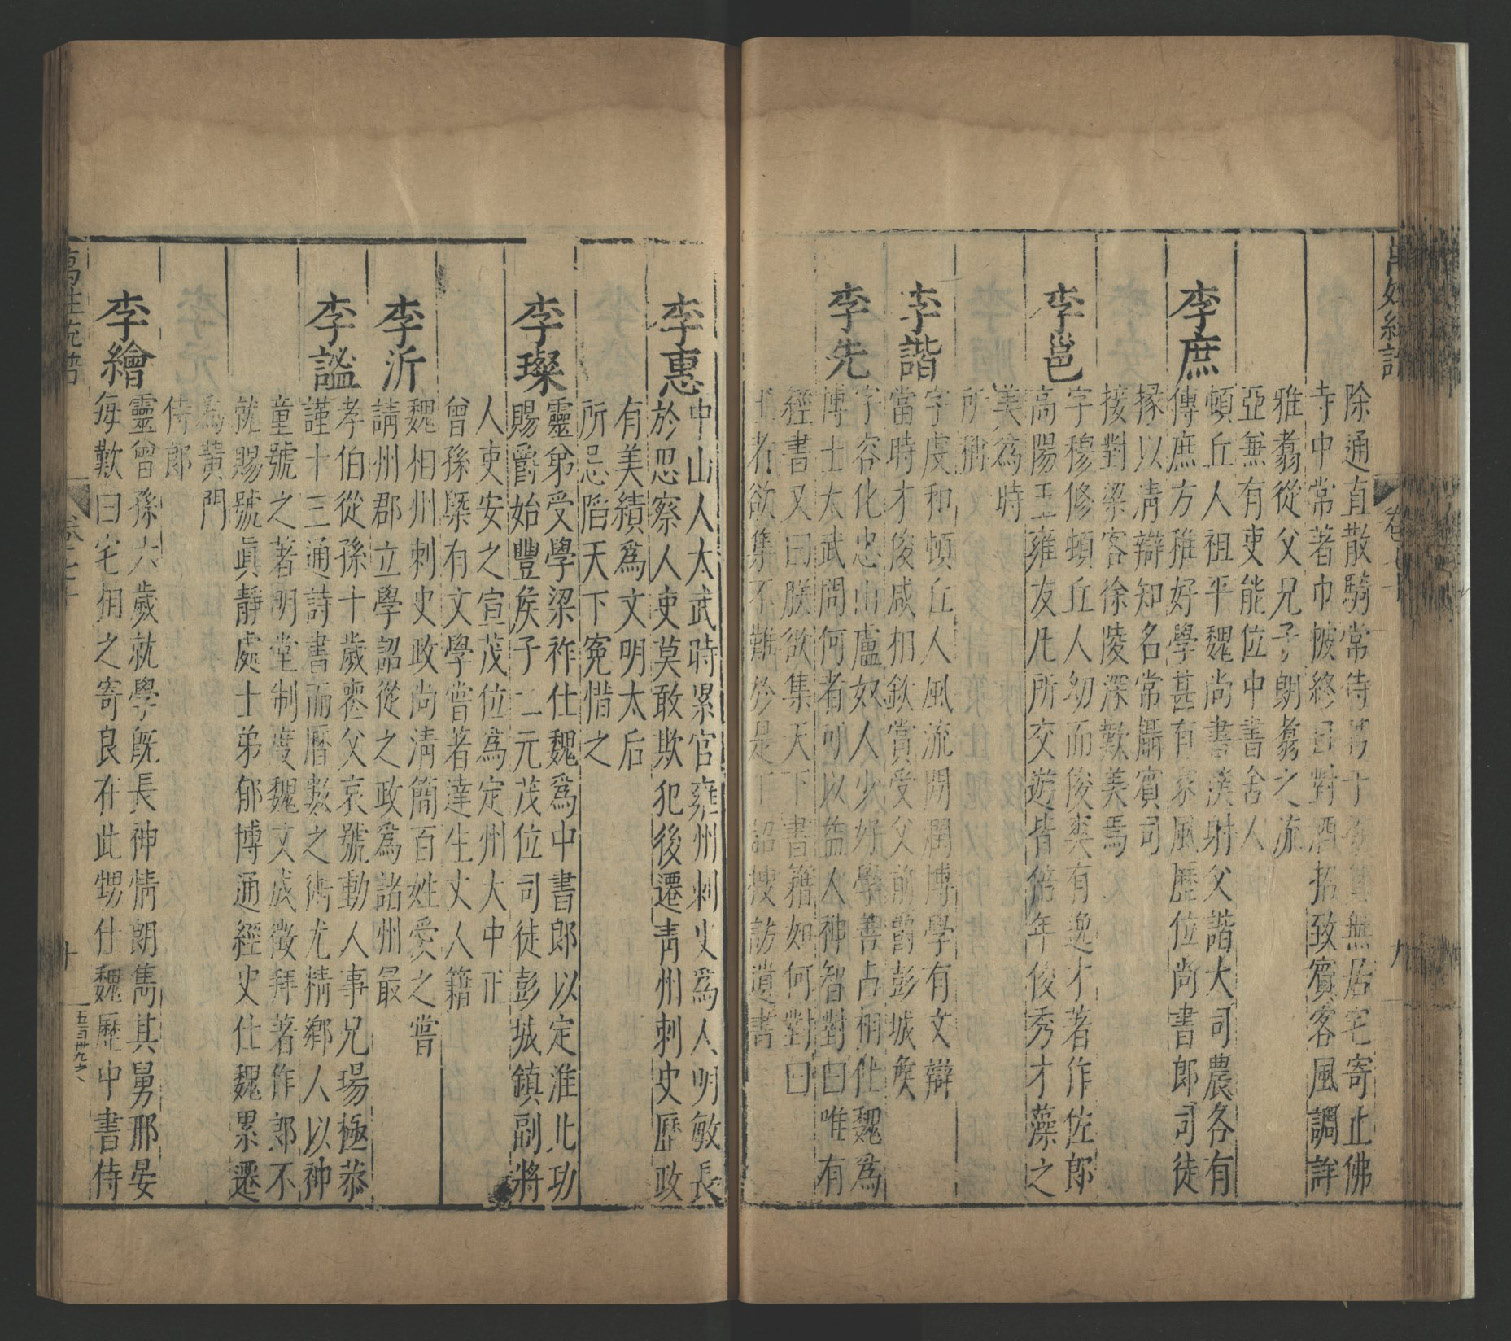 除通直散騎常侍
寺中常著巾帔終日對酒招致賓客風調詳
雅翥從父兄子朗翥之流
亞無有吏能位中書舍人
李庶
頓丘人祖平魏尚書僕射父諧大司農各有
傳庶方雅好學甚有家風歷位尚書郎司徒
掾以清辯知名常攝賓司
接對梁客徐陵深歎美焉
李邕
字穆修頓丘人幼而俊爽有逸才著作佐郎
高陽王雍友凡所交遊皆倍年俊秀才藻之
美為時
所稱
李諧
字虔和頓丘人風流閑潤博學有文辯
當時才俊咸相欽賞受父前爵彭城侯
李先
字容化忠山盧奴人少好學善占相仕魏為
博士太武問何者可以益人神智對曰唯有
經書又曰朕欲集天下書籍如何對曰
主者欲集不難於是下詔搜訪遺書
李惠
中山人太武時累官雍州刺史為人明敏長
於思察人吏莫敢欺犯後遷青州刺史歷政
有美績為文明太后
所忌陷天下冤惜之
李璨
靈弟受學梁祚仕魏為中書郎以定淮北功
賜爵始豐侯子二元茂位司徒彭城鎮副將
人吏安之宣茂位為定州大中正
曾孫槩有文學嘗著達生丈人籍
李沂
魏相州刺史政尚清簡百姓愛之嘗
請州郡立學詔從之政為諸州最
李謐
孝伯從孫十歲喪父哀號動人事兄瑒極恭
謹十三通詩書而曆數之術尤精鄉人以神
童號之著明堂制度魏文成徵拜著作郎不
就賜號貞靜處士弟郁博通經史仕魏累遷
為黃門
侍郎
李繪
靈曾孫六歲就學既長神情朗雋其舅邢晏
每歎曰宅相之寄良在此甥仕魏歷中書侍
萬姓統譜